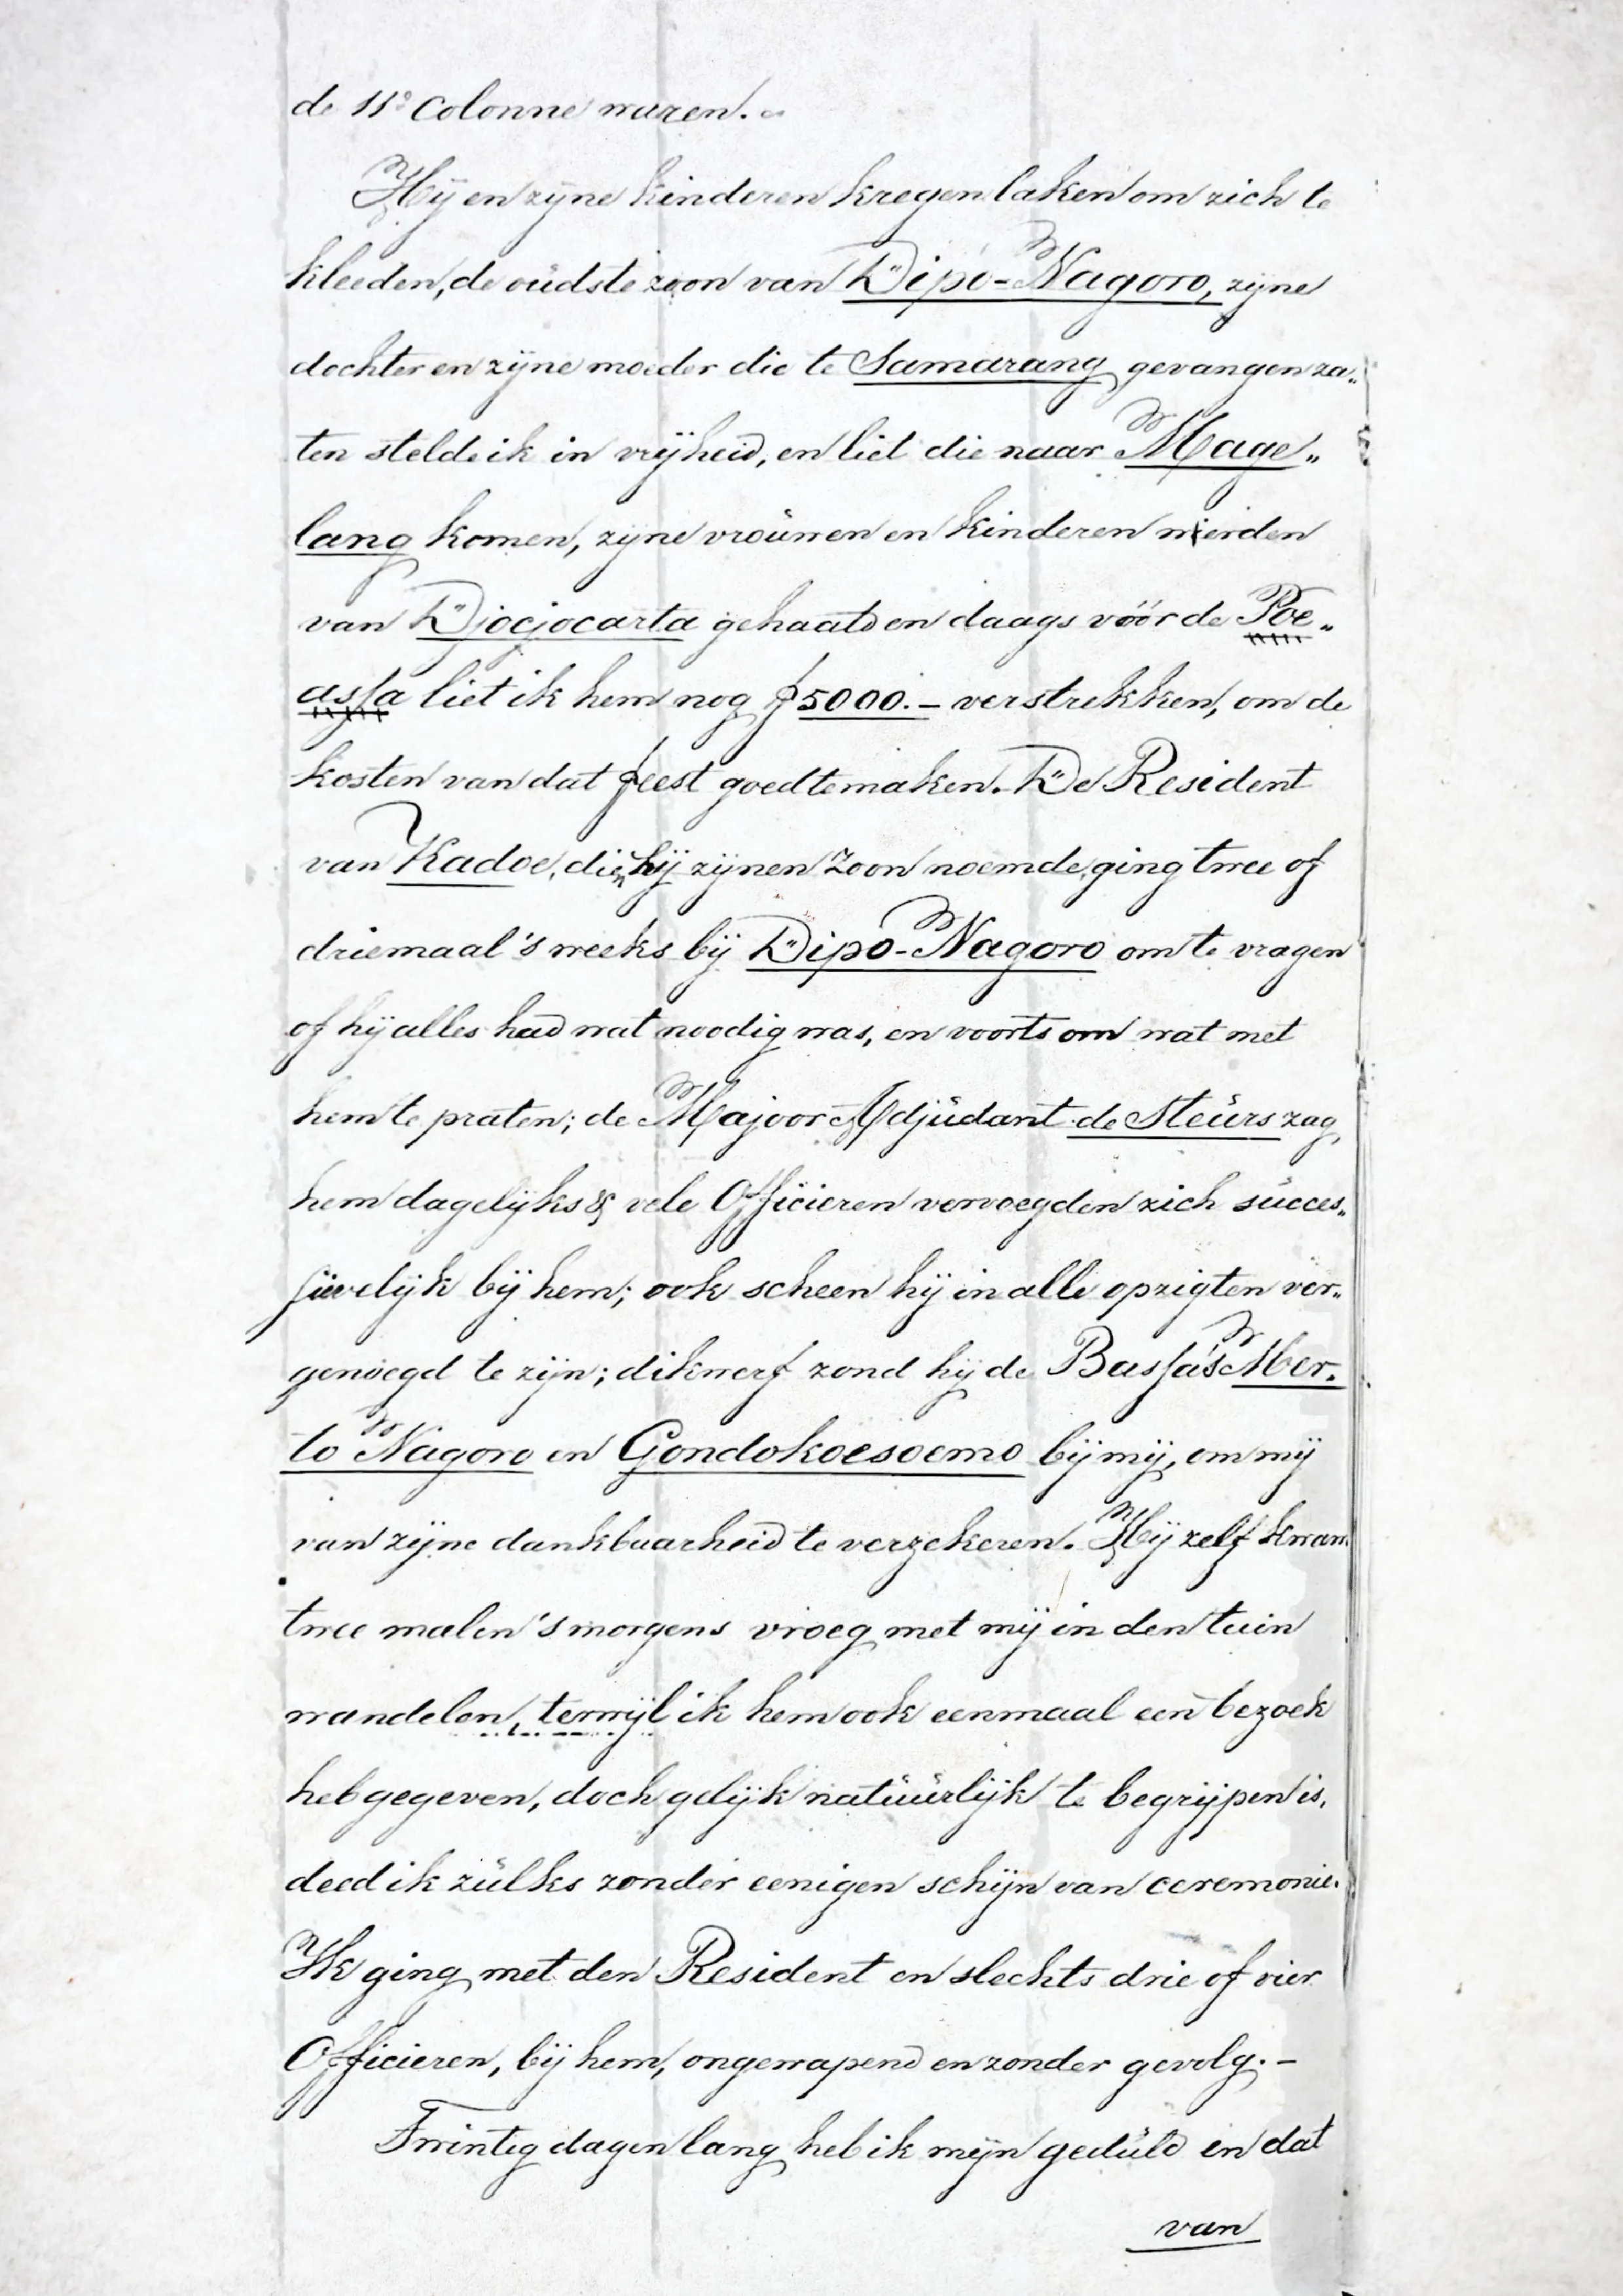 de 11e Colonne waren. –
Hij en zijne kinderen kregen laken om zich te
kleeden, de oudste zoon van Dipo-Nagoro, zijne
dochter en zijne moeder die te Samarang gevangen za„
ten stelde ik in vrijheid, en liet die naar Mage„
lang komen, zijne vrouwen en kinderen wierden
van Djocjocarta gehaald en daags vóór de Poe„
assa liet ik hem nog ƒ5000.– verstrekken, om de
kosten van dat feest goed te maken. De Resident
van Kadoe, dien hij zijnen Zoon noemde, ging twee of
driemaal 's weeks bij Dipo-Nagoro om te vragen
of hij alles had wat noodig was, en voorts om wat met
hem te praten; de Majoor Adjudant de Steurs zag
hem dagelijks & vele Officieren vervoegden zich succes„
sivelijk bij hem; ook scheen hij in alle opzigten ver„
genoegd te zijn; dikwerf zond hij de Bassa's Mer„
to Nagoro en Gondokoesoemo bij mij, om mij
van zijne dankbaarheid te verzekeren. Hij zelf kwam
twee malen 's morgens vroeg met mij in den tuin
wandelen, terwijl ik hem ook eenmaal een bezoek
heb gegeven, doch gelijk natuurlijk te begrijpen is,
deed ik zulks zonder eenigen schijn van ceremonie.
Ik ging met den Resident en slechts drie of vier
Officieren, bij hem, ongewapend en zonder gevolg. –
Twintig dagen lang heb ik mijn geduld en dat
van